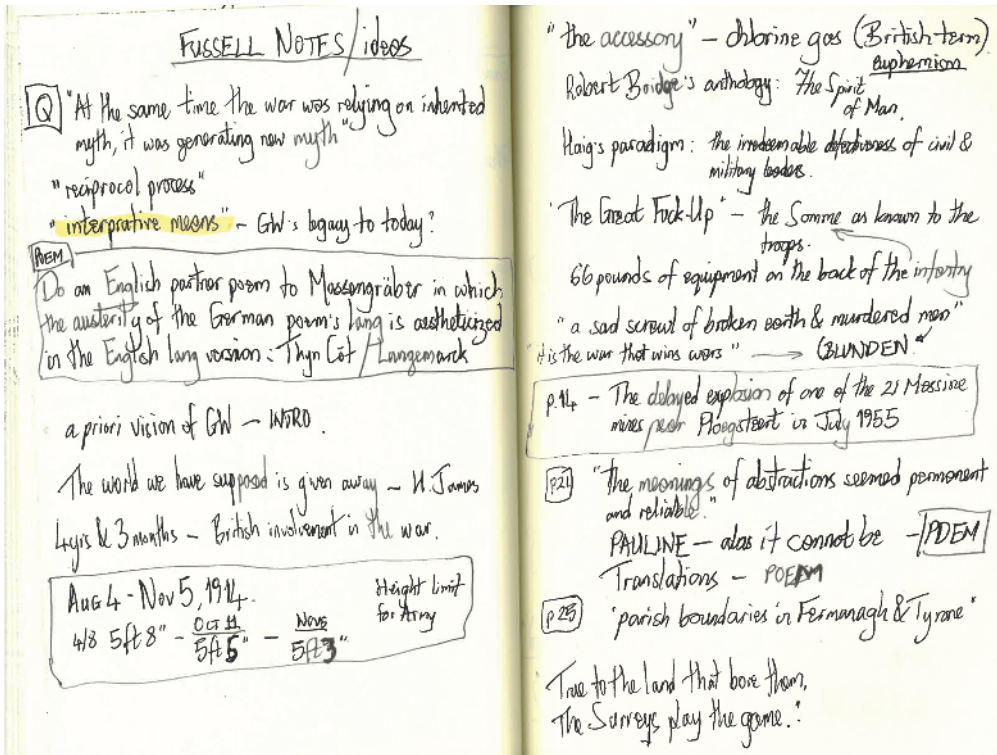 FUSSELL NOTES/ideas
Q "At the same time the war was relying on inherited
myth, it was generating new myth"
"reciprocol process"
"interprative means" - GW's legacy to today?
POEM
Do an English partner poem to Massengräber in which
the austerity of the German poem's lang is aestheticized
in the English lang version: Tyn Cot / Langemarck
a priori vision of GW - INTRO.
The world we have supposed is given away - H. James
4yrs & 3 months - British involvement in the war.
Aug 4 - Nov 5, 1914. Height limit
for Army
4/8 5ft 8" - OCT 11 5ft 5" - NOV 5 5ft 3"
"the accessory" - chlorine gas (British term)
euphemism
Robert Bridge's anthology: The Spirit
of Man.
Haig's paradigm: the irredeemable defectiveness of civil &
military leaders.
'The Great Fuck-Up' - the Somme as known to the
troops.
66 pounds of equipment on the back of the infantry
"a sad scrawl of broken earth & murdered men"
"it is the war that wins wars" → (BLUNDEN)
p.14 - The delayed explosion of one of the 21 Messine
mines near Ploegsteert in July 1955
p21 "the meanings of abstractions seemed permanent
and reliable."
PAULINE - alas it cannot be - POEM
Translations - POEM
p25 'parish boundaries in Fermanagh & Tyrone"
True to the land that bore them,
The Surreys play the game."